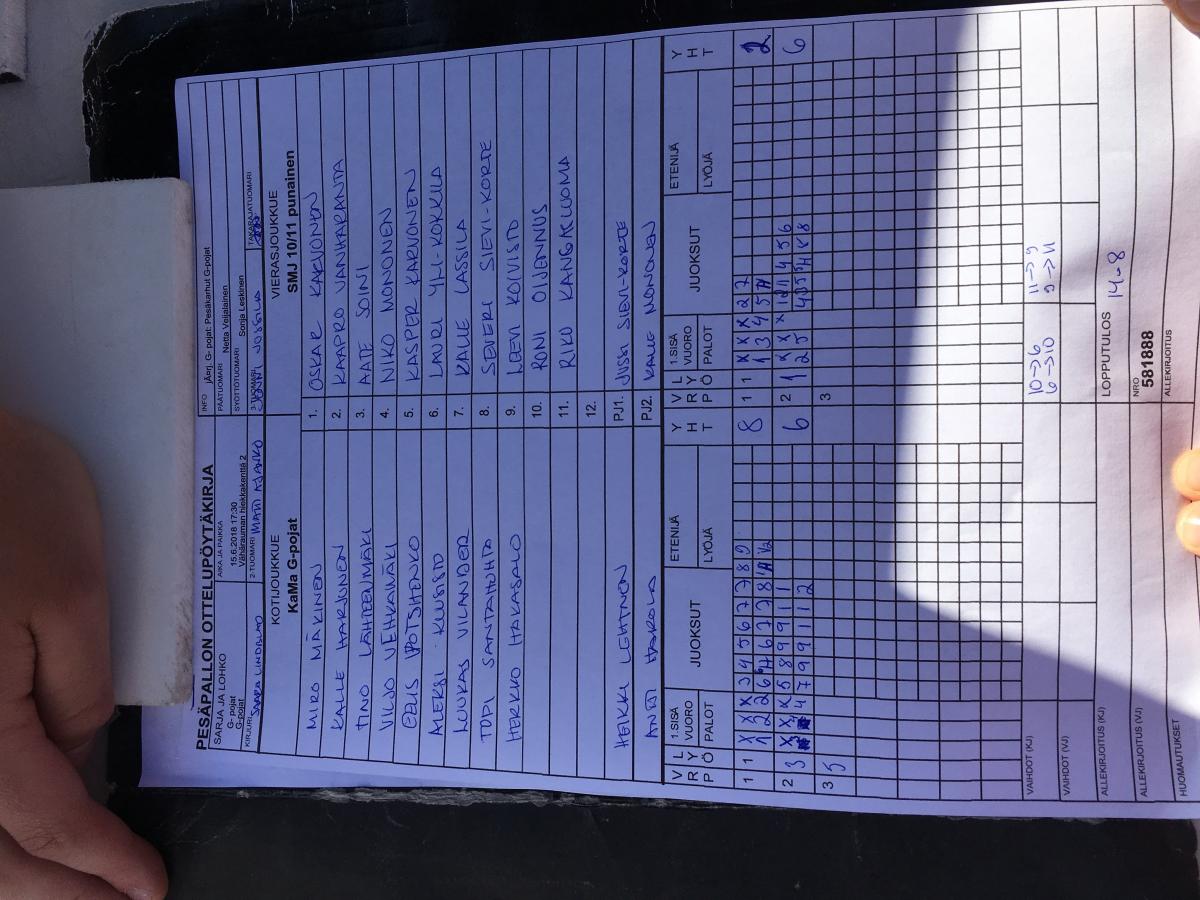 PESÄPALLON OTTELUPÖYTÄKIRJA
SARJA JA LOHKO
G- pojat
G-pojat
AIKA JA PAIKKA
15.6.2018 17:30
Vähärauman hiekkakenttä 2
INFO jÄrej. G- pojat: Pesäkarhut G-pojat
PÄÄTUOMARI Netta Veijalainen
SYÖTTÖTUOMARI Sonja Leskinen
KIRJURI SAARA LINDBLAD
2-TUOMARI MATTI AJANKO
3-TUOMARI JOUNI JUSSILA
TAKARAJATUOMARI
KOTIJOUKKUE
KaMa G-pojat
VIERASJOUKKUE
SMJ 10/11 punainen
MIRO MÄKINEN 1. OSKAR KARVONEN
KALLE HARJUNEN 2. KAAPRO VANHARANTA
TINO LÄHTEENMÄKI 3. AATE SOINI
VILJO VEHKAMÄKI 4. NIKO MONONEN
EELIS POTSHENKO 5. KASPER KARVONEN
ALEKSI KUUSISTO 6. LAURI YLI-KOKKILA
LUUKAS VILANDER 7. KALLE LASSILA
TOPI SANTAHUHTA 8. SEVERI SIEVI-KORTE
HERKKO HAKASALO 9. LEEVI KOIVISTO
10. RONI OIJENNUS
11. RIKU KANGASLUOMA
12.
HEIKKI LEHTINEN PJ1. JUSSI SIEVI-KORTE
ANTTI HAROLA PJ2. KALLE MONONEN
V R P L Y Ö 1.SISÄ VUORO PALOT JUOKSUT ETENIJÄ LYÖJÄ Y H T V R P L Y Ö 1.SISÄ VUORO PALOT JUOKSUT ETENIJÄ LYÖJÄ Y H T
1 1 X X X 3 4 5 6 7 7 8 9 8 1 1 X X X 2 7 2
1 2 2 6 4 6 7 7 8 1 3 4 5
2 3 X X X 5 8 9 9 1 1 6 2 1 X X X 10 11 4 5 6 6
4 7 9 9 1 1 2 1 2 5 4 5 5 8
3 5 3
VAIHDOT (KJ) 10->6 11->9
6->10 9->11
VAIHDOT (VJ)
ALLEKIRJOITUS (KJ) LOPPUTULOS 14-8
ALLEKIRJOITUS (VJ) NRO 581888
HUOMAUTUKSET ALLEKIRJOITUS